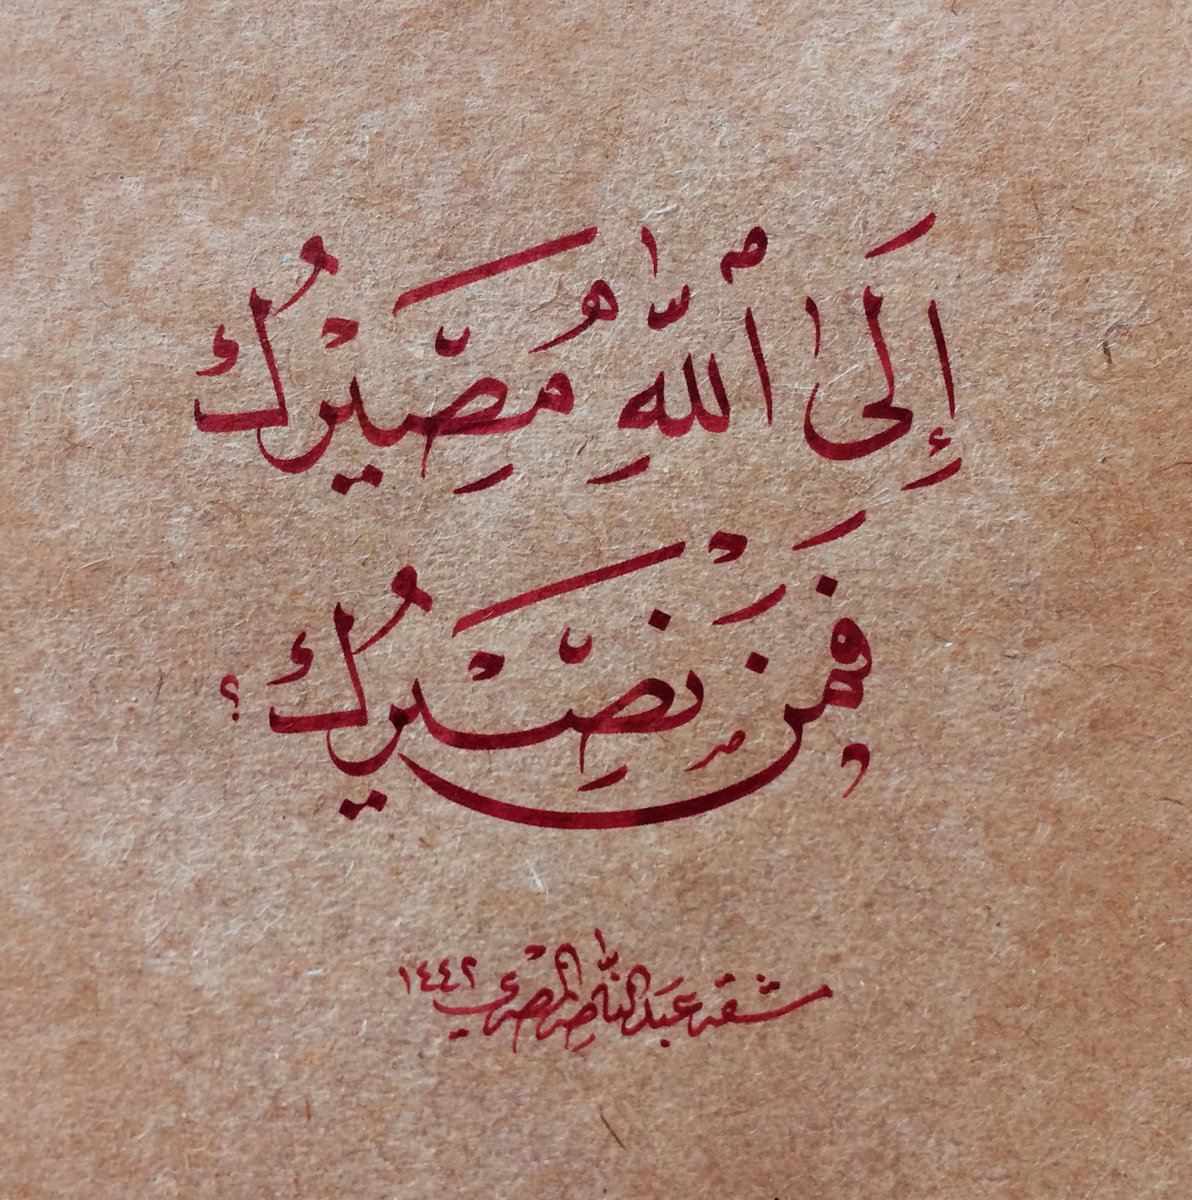 إِلَى ٱللَّهِ مَصِيْرُكَ
فَمَنْ نَصِيْرُكَ؟
مشقه عبد الناصر المصري ١٤٤٢